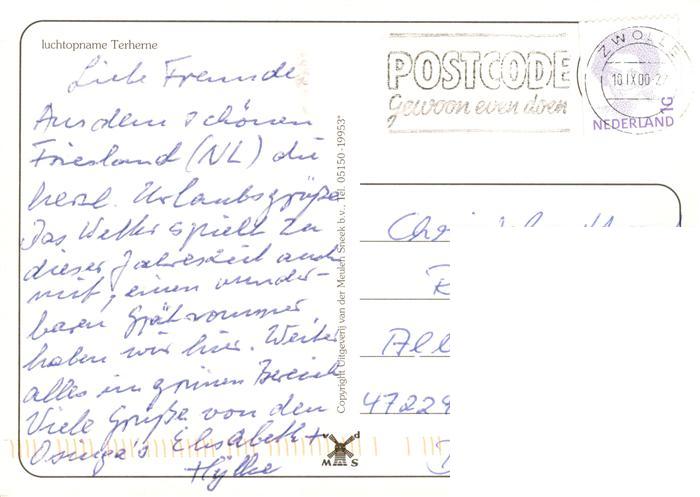 luchtopname Terherne
Liebe Freunde
Aus dem schönen
Friesland (NL) die
herzl. Urlaubsgrüße
Das Wetter spielt zu
dieser Jahreszeit auch
mit, einen wunder-
baren Spätsommer
haben wir hier. Weiter
alles im grünen Bereich
Viele Grüße von den
Osinga's Elisabeth +
Hylke
Copyright Uitgeverij van der Meulen Sneek b.v., Tel. 05150-19953*
v d
M S
POSTCODE
Gewoon even doen
ZWOLLE
10 IX 00
NEDERLAND
47229